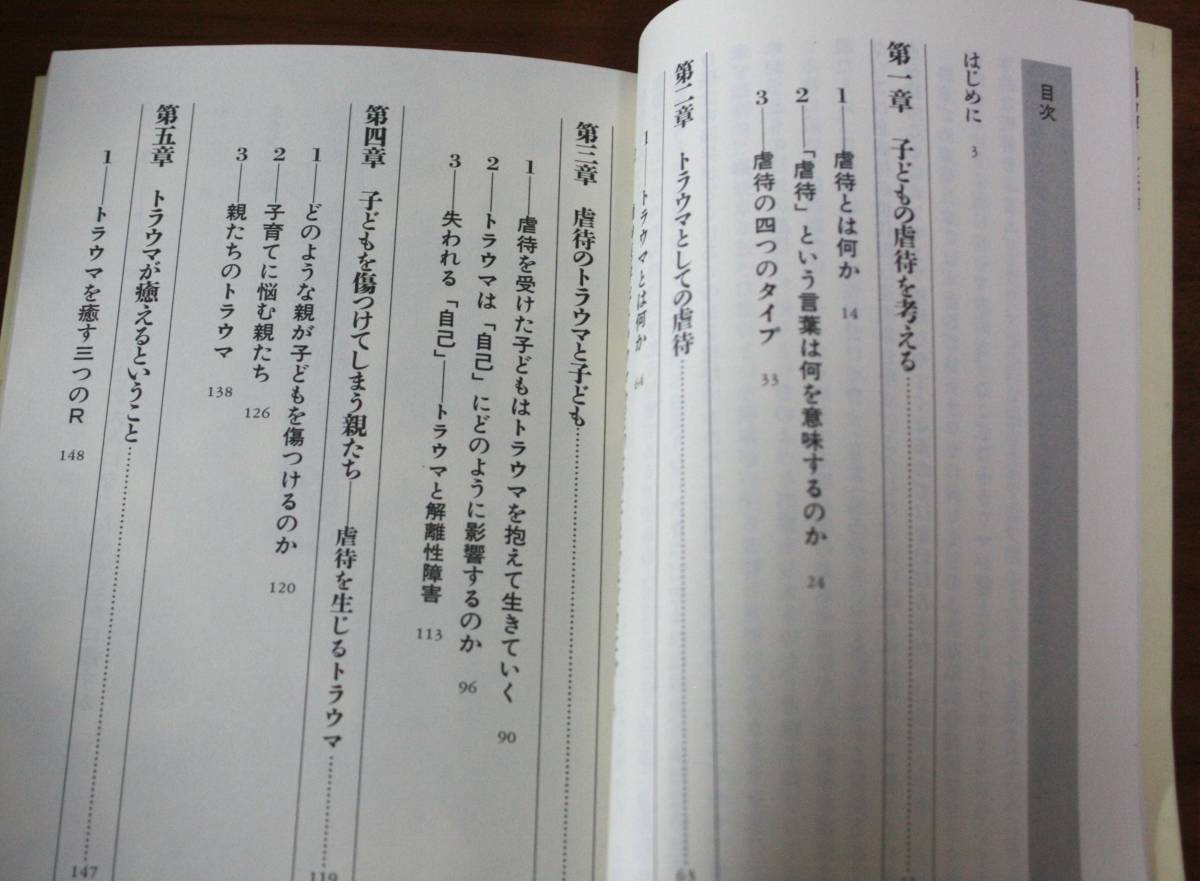 目次
はじめに 3
第一章 子どもの虐待を考える
1――虐待とは何か 14
2――「虐待」という言葉は何を意味するのか 24
3――虐待の四つのタイプ 33
第二章 トラウマとしての虐待 63
1――トラウマとは何か 64
第三章 虐待のトラウマと子ども
1――虐待を受けた子どもはトラウマを抱えて生きていく 90
2――トラウマは「自己」にどのように影響するのか 96
3――失われる「自己」――トラウマと解離性障害 113
第四章 子どもを傷つけてしまう親たち――虐待を生じるトラウマ 119
1――どのような親が子どもを傷つけるのか 120
2――子育てに悩む親たち 126
3――親たちのトラウマ 138
第五章 トラウマが癒えるということ 147
1――トラウマを癒す三つのR 148